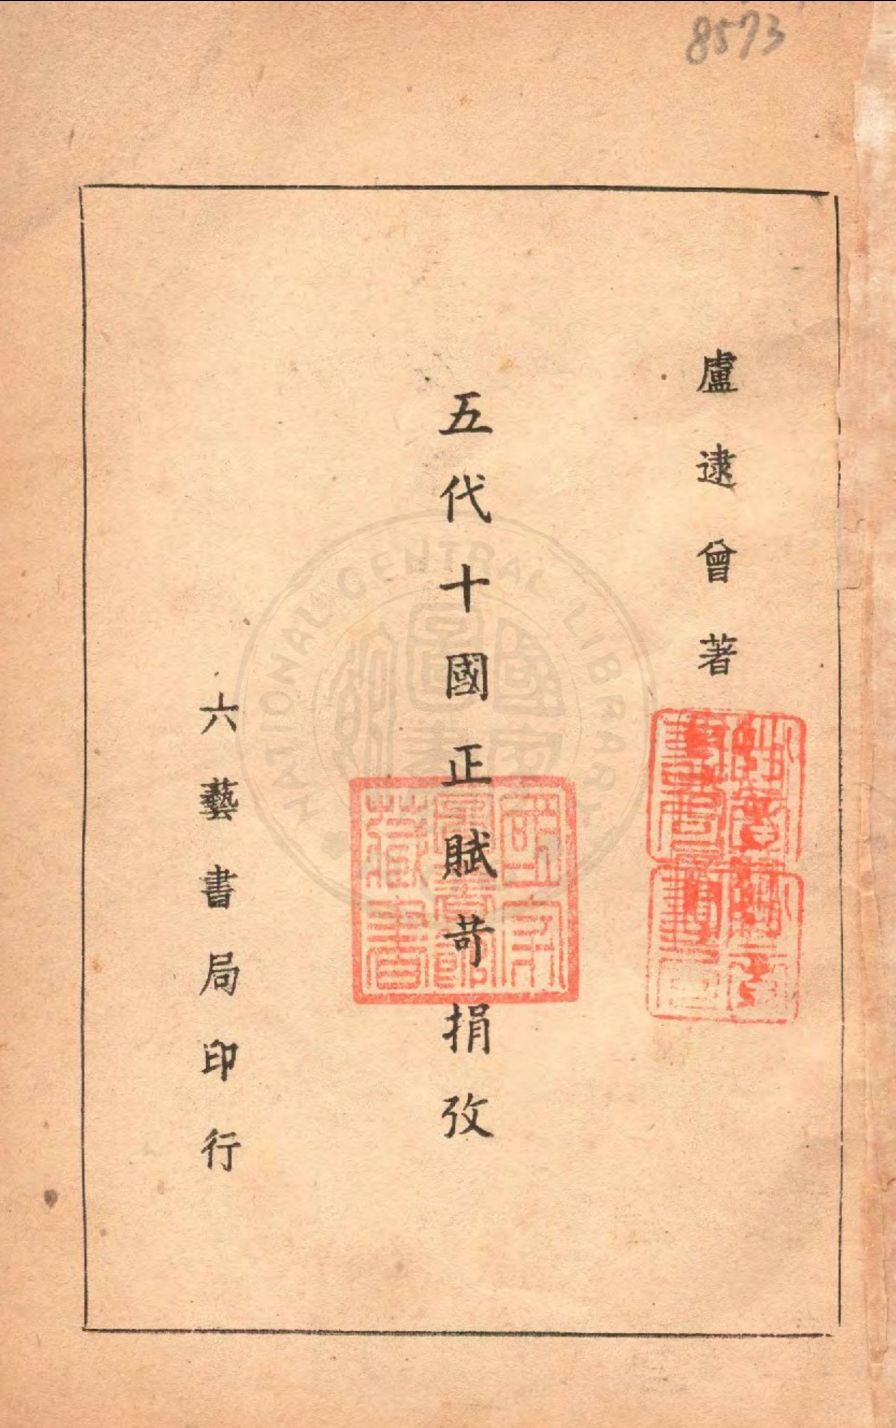 8573
盧逮曾著
五代十國正賦苛捐攷
六藝書局印行
國家圖書館藏書
NATIONAL CENTRAL LIBRARY